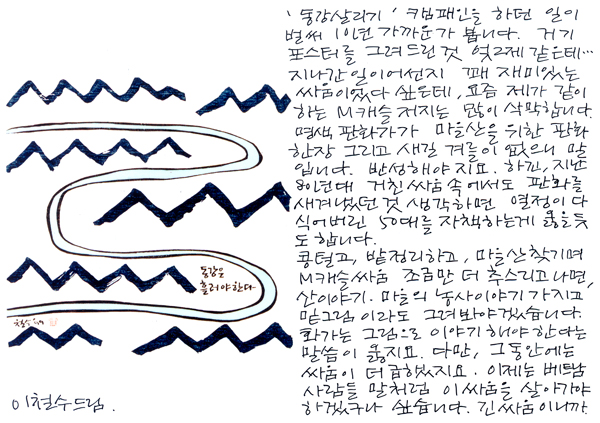 '동강살리기' 캠패인을 하던 일이
벌써 10년 가까운가 봅니다. 거기
포스터를 그려드린것 엊그제 같은데…
지나간 일이어선지 꽤 재미있는
싸움이었다 싶은데, 요즘 제가 같이
하는 M캐슬 저지는 많이 삭막합니다.
명색 판화가가 마을산을 위한 판화
한장 그리고 새길 겨를이 없으니 말
입니다. 반성해야지요. 하긴, 지난
80년대 거친 싸움속에서도 판화를
새겨냈던 것 생각하면 열정이 다
식어버린 50대를 자책하는게 옳을듯
도 합니다.
콩털고, 밭정리하고, 마을산찾기며
M캐슬싸움 조금만 더 추스리고나면,
산이야기. 마을의 농사이야기 가지고
밑그림이라도 그려봐야겠습니다.
화가는 그림으로 이야기해야한다는
말씀이 옳지요. 다만, 그동안에는
싸움이 더 급했지요. 이제는 베트남
사람들 말처럼 이싸움을 살아가야
하겠구나 싶습니다. 긴싸움이니까.
동강은
흘러야한다
이철수드림.